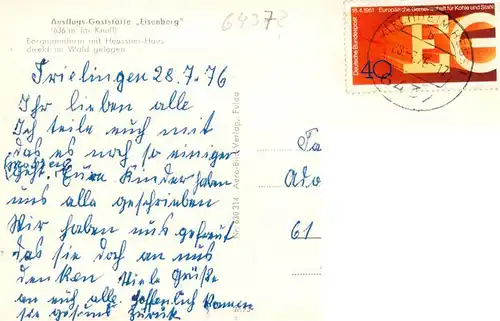 Ausflugs-Gaststätte „Eisenberg"
(636 m. im Knüll)
Bergmannsheim mit Heussner-Haus
direkt im Wald gelegen
18.4.1951 Europäische Gemeinschaft für Kohle und Stahl
Deutsche Bundespost
40
Trielingen 28.7.76
Ihr lieben alle
Ich teile euch mit
das es noch so einiger
geht. Eure Kinder haben
uns alle geschrieben
Wir haben uns gefreut
das sie doch an uns
denken Viele Grüße
an euch alle. hoffenlich kommen
sie gesund zurück
Aero-Bild Verlag, Fulda
Fa
Ado
61